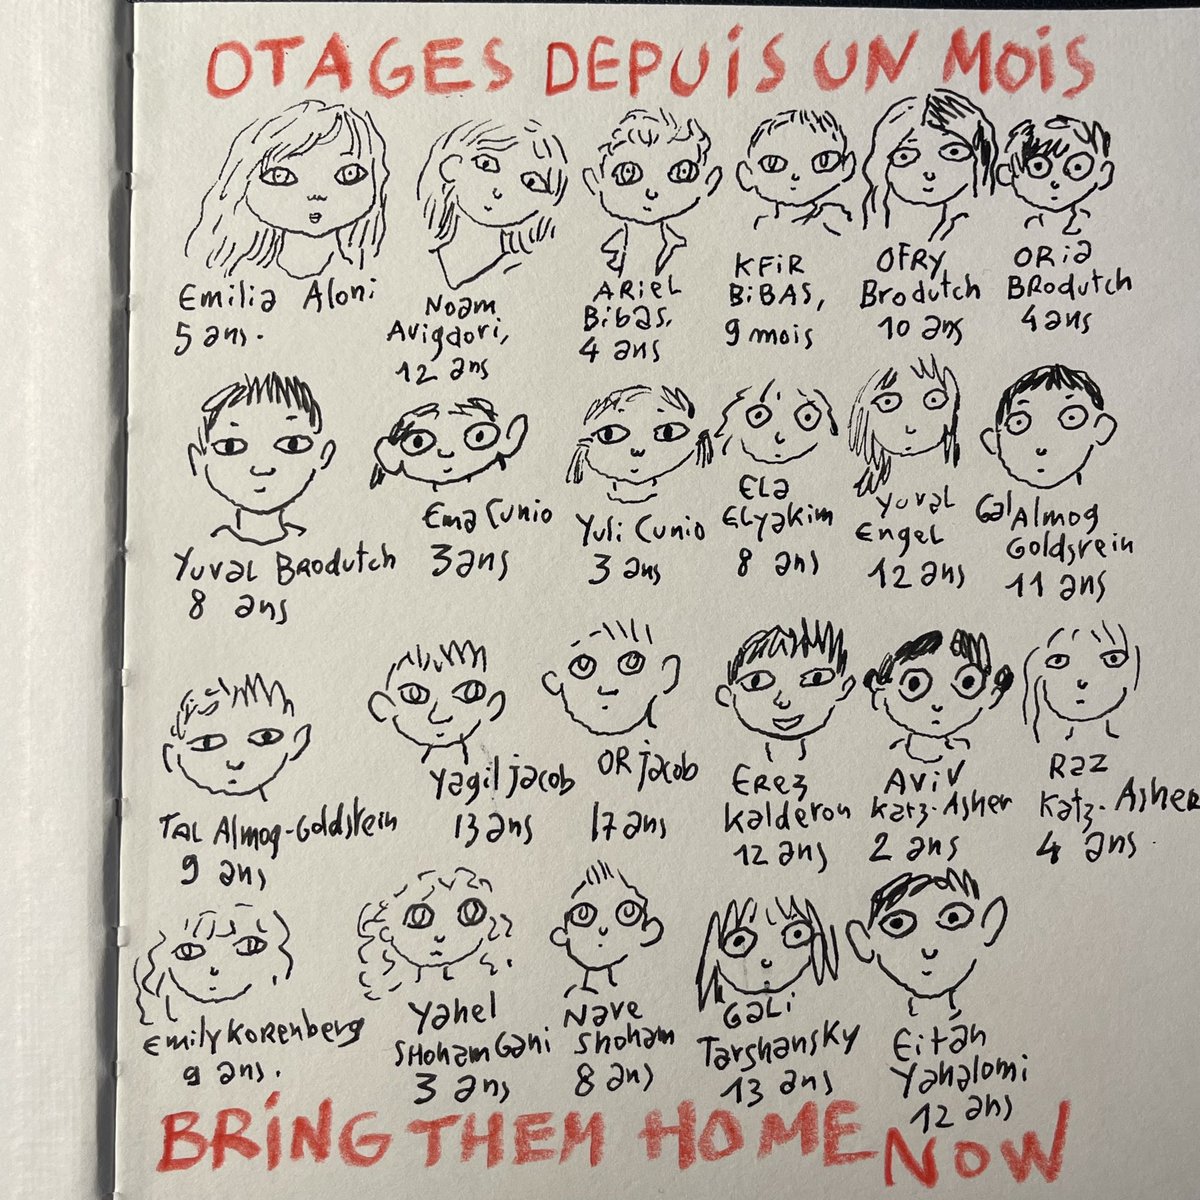 OTAGES DEPUIS UN MOIS
Emilia Aloni
5 ans.
Noam
Avigdori,
12 ans
ARIEL
Bibas,
4 ans
KFIR
BIBAS,
9 mois
OFRY
Brodutch
10 ans
ORIA
BRodutch
4 ans
Yuval BRodutch
8 ans
Ema Cunio
3 ans
Yuli Cunio
3 ans
ELA
ELyakim
8 ans
Yuval
Engel
12 ans
Gal Almog
Goldsrein
11 ans
TAL Almog-Goldstein
9 ans
Yagil jacob
13 ans
OR jacob
17 ans
EREZ
Kalderon
12 ans
AVIV
Katz-Asher
2 ans
RAZ
Katz-Asher
4 ans.
Emily KORENberg
9 ans.
Yahel
SHOHAM Gani
3 ans
Nave
Shoham
8 ans
GALI
Tarshansky
13 ans
Eitan
Yahalomi
12 ans
BRING THEM HOME
NOW